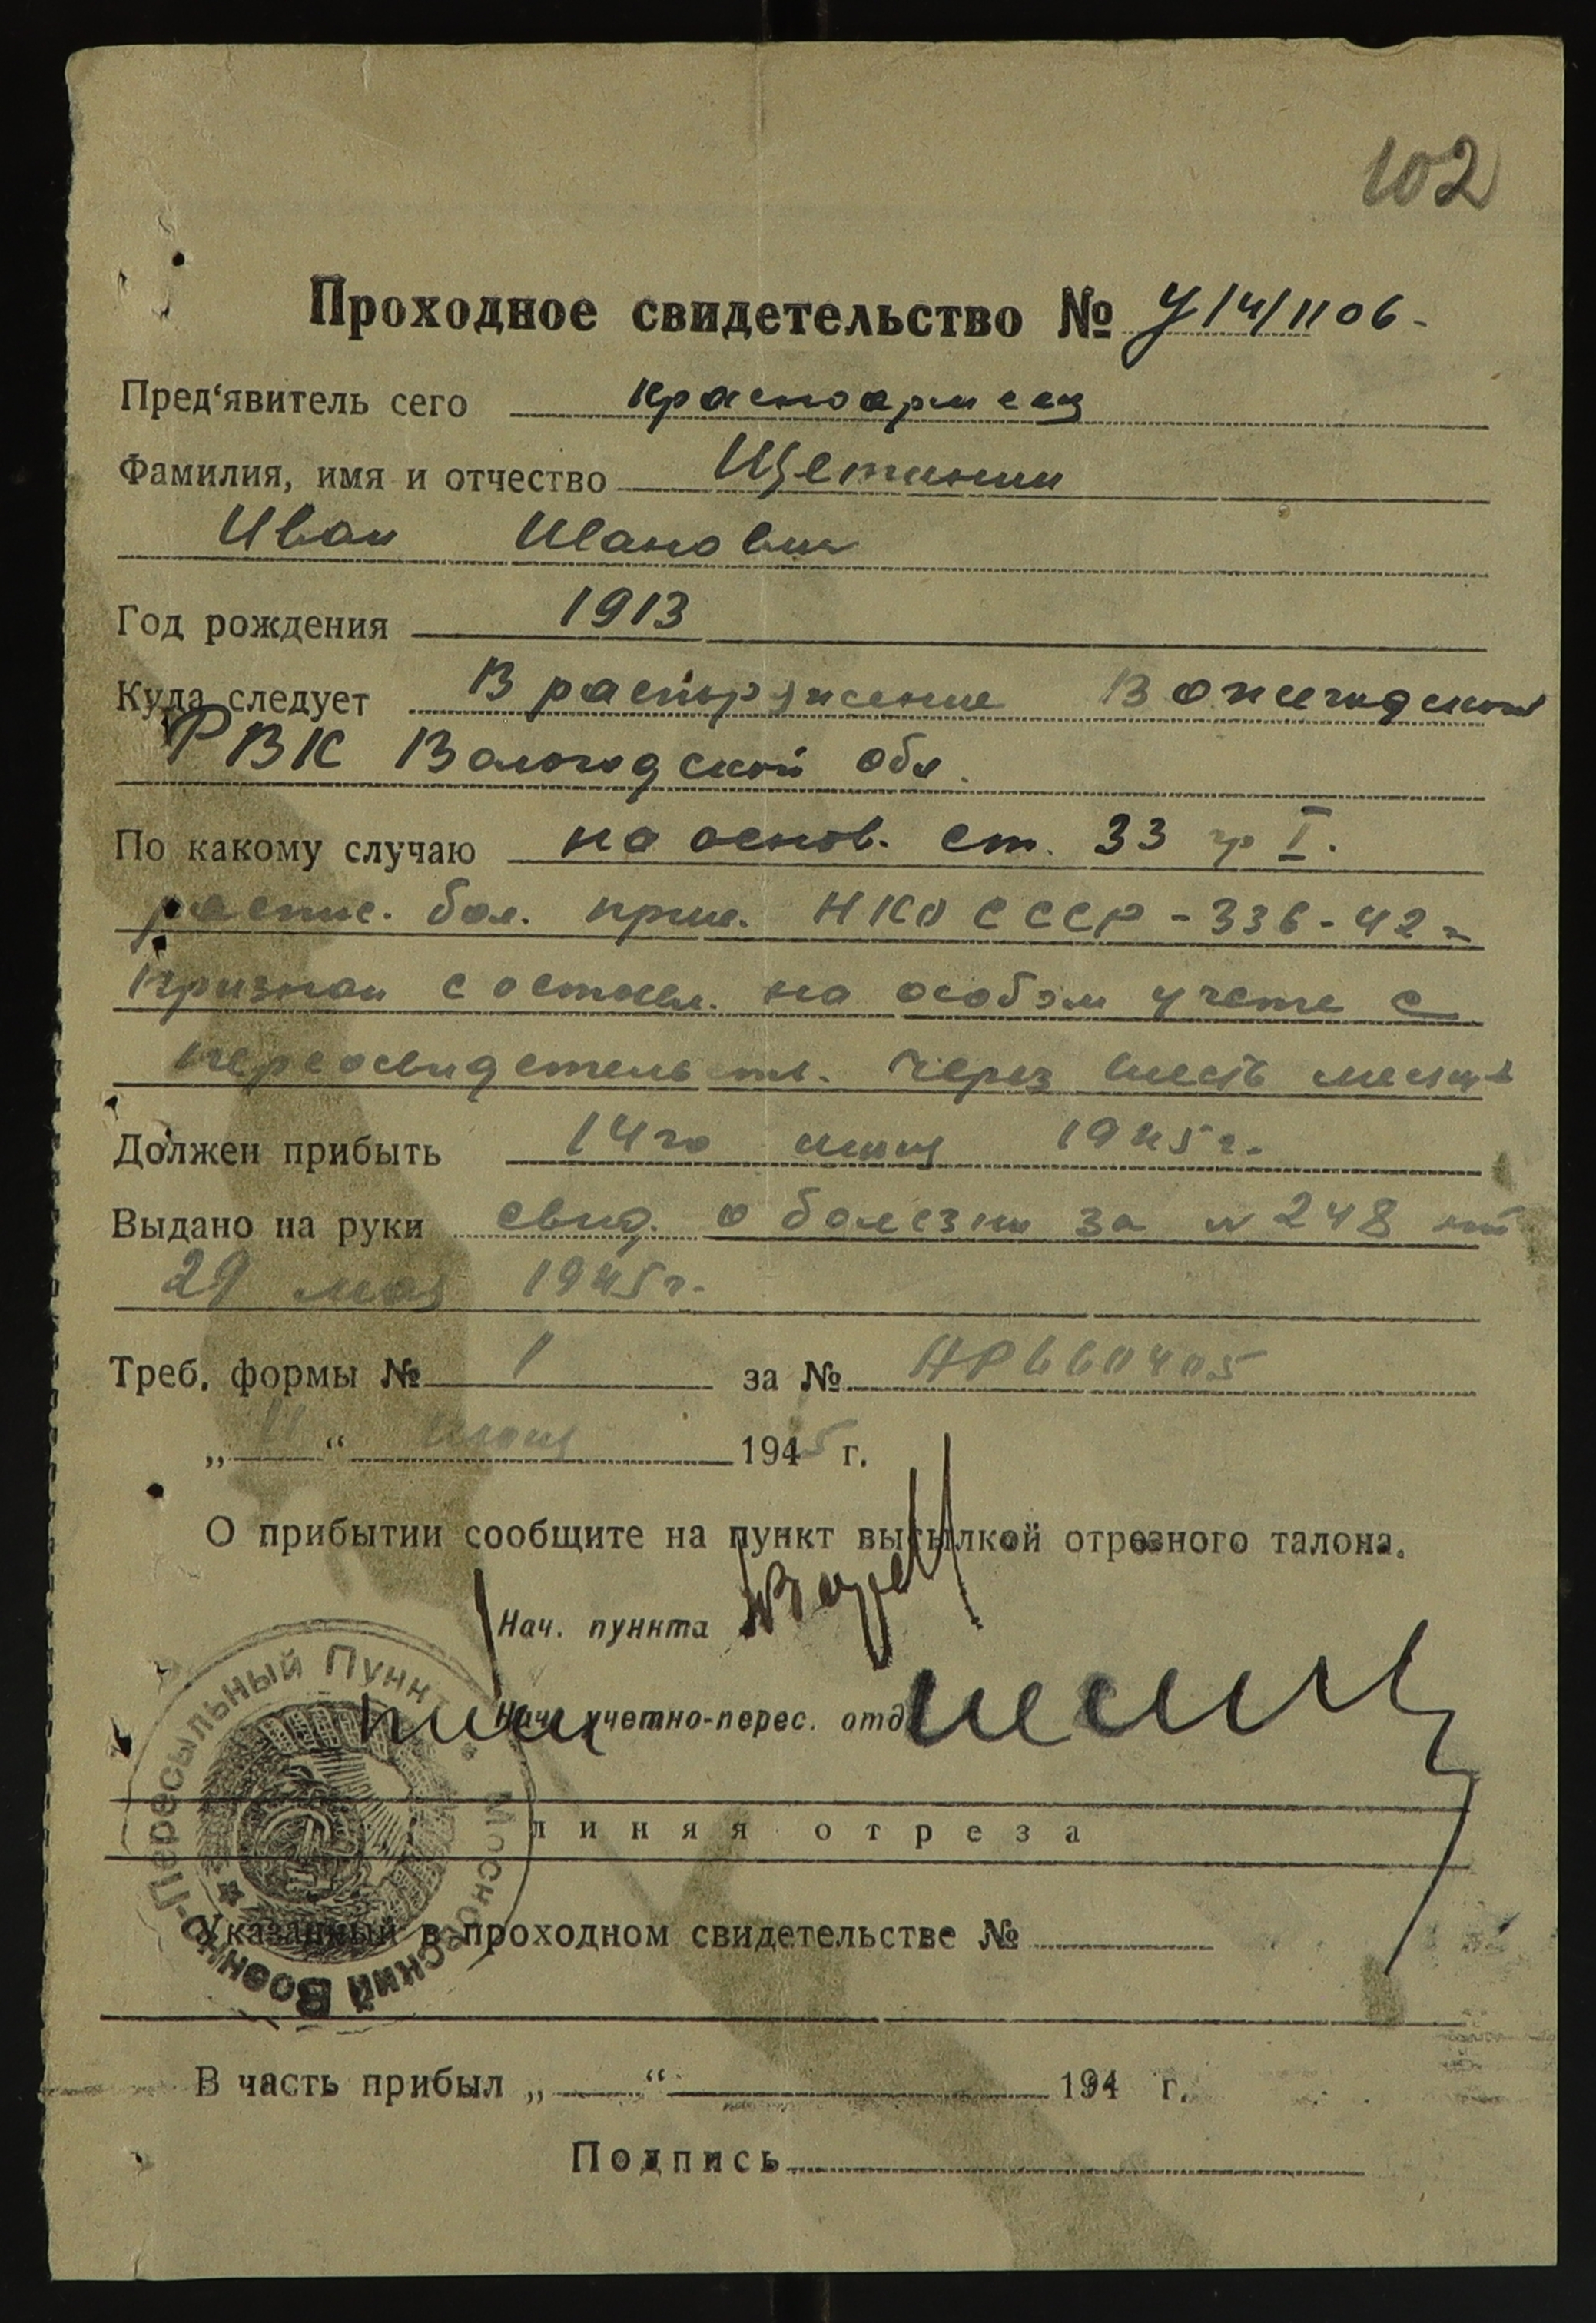 102
Проходное свидетельство № У/4/1106-
Пред'явитель сего красноармеец
Фамилия, имя и отчество Щетинин
Иван Иванович
Год рождения 1913
Куда следует В распоряжение Вожегодского
РВК Вологодской обл.
По какому случаю на основ. ст. 33 гр I.
распис. бол. прик. НКО СССР - 336 - 42 г
признан с оставл. на особом учете с
переосвидетельств. через шесть месяц
Должен прибыть 14го июня 1945 г.
Выдано на руки свид. о болезни за № 248 от
29 мая 1945 г.
Треб. формы № 1 за № 660405
„ 11 “ июня 1945 г.
О прибытии сообщите на пункт высылкой отрезного талона.
Нач. пункта
Нач. учетно-перес. отд.
линия отреза
Указанный в проходном свидетельстве №
В часть прибыл „ “ 194 г.
Подпись
Московский Военно-Пересыльный Пункт